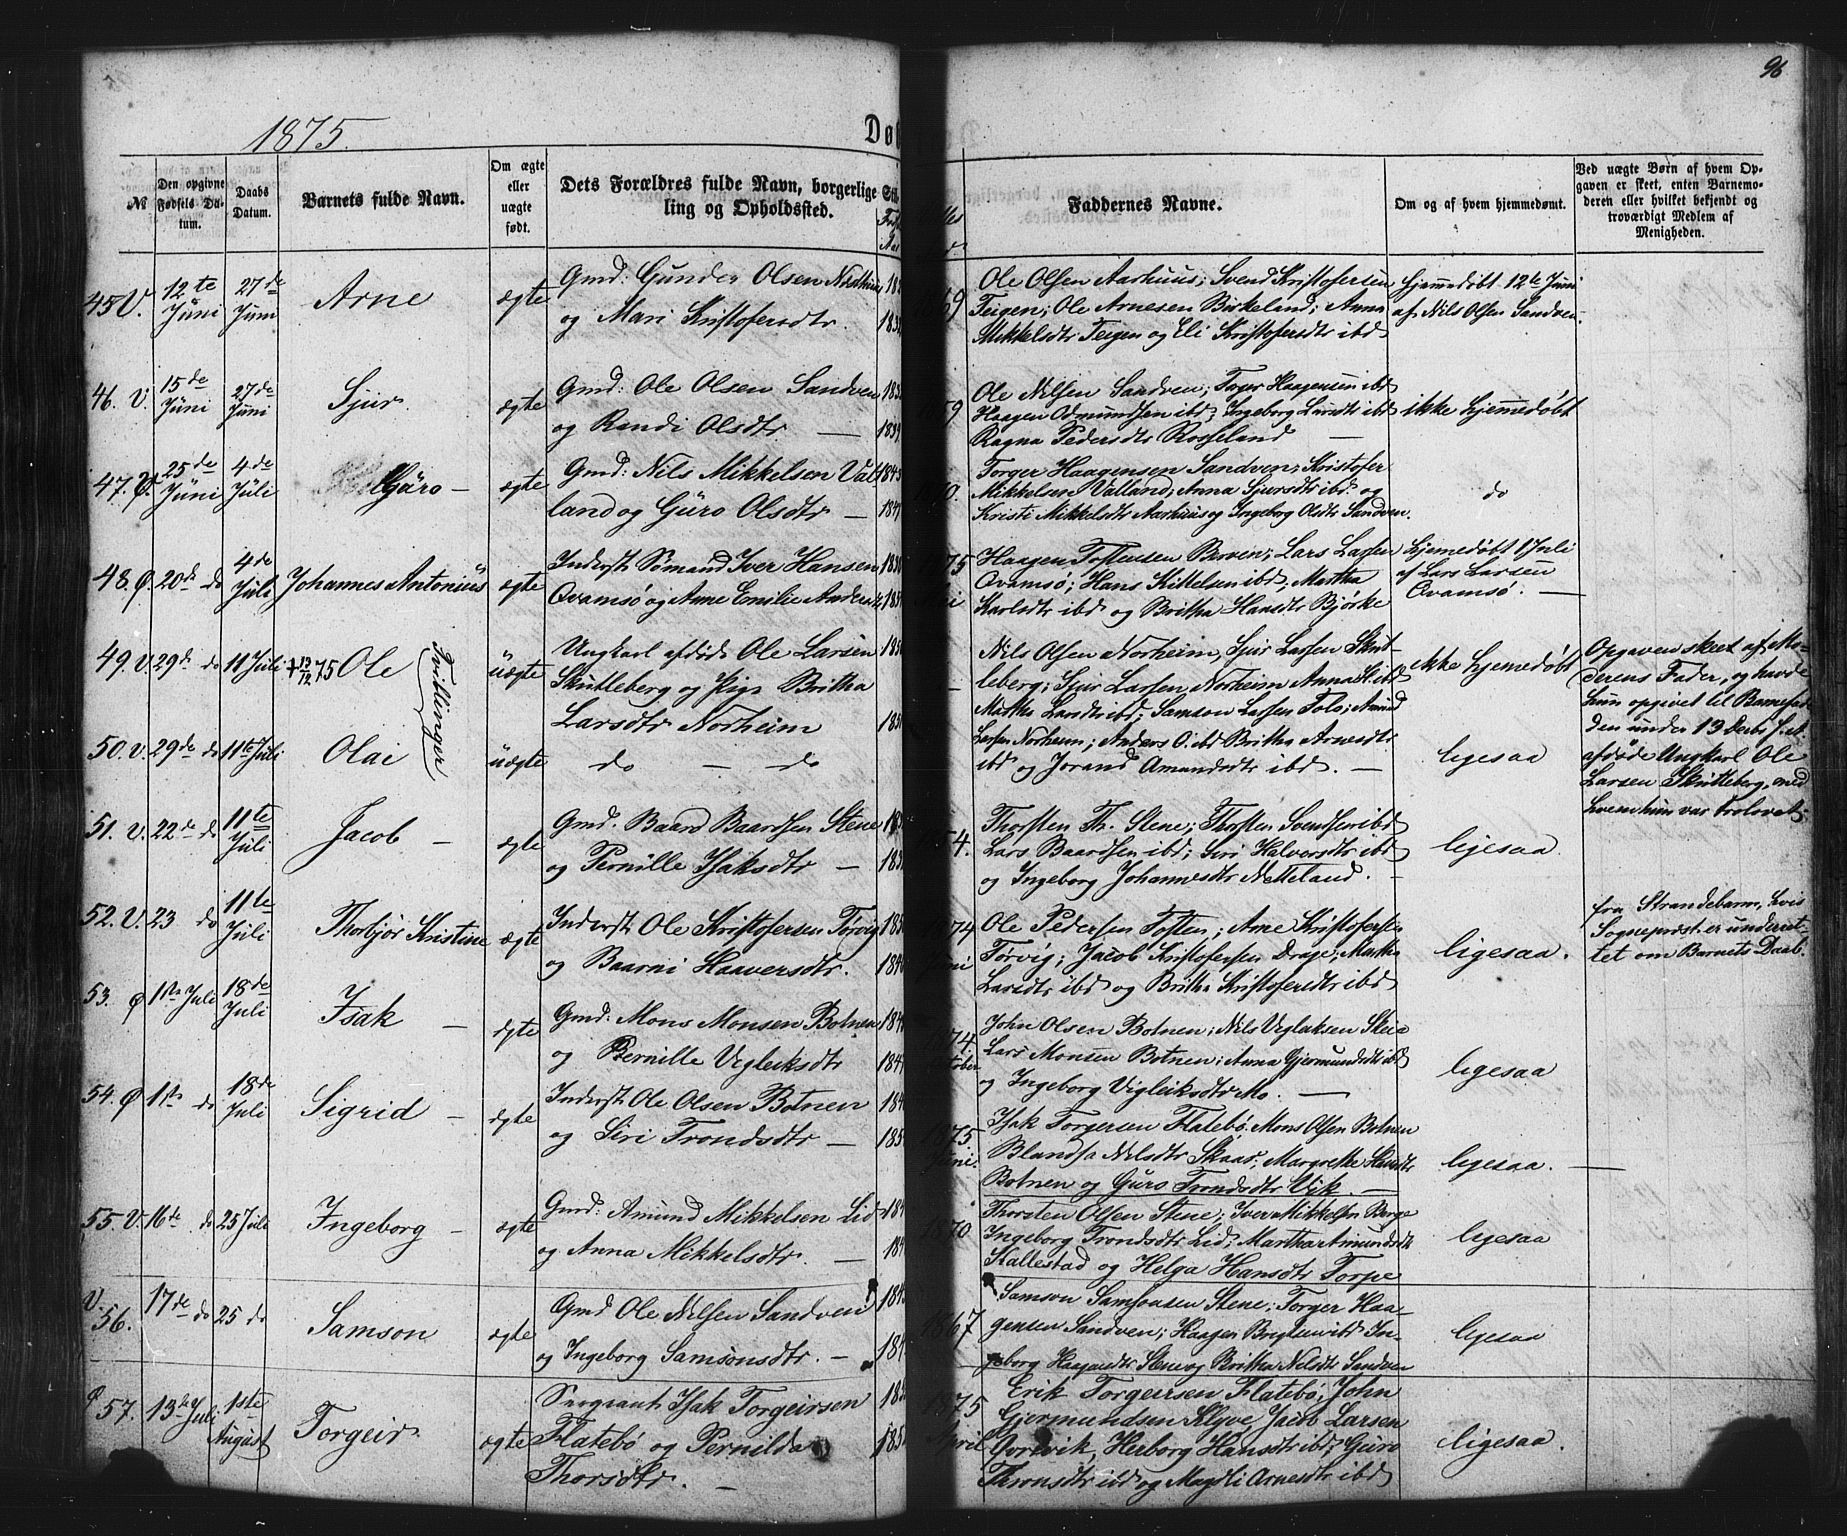 96
1875.
Dø
№
Den opgivne Fødsels Datum.
Daabs Datum.
Barnets fulde Navn.
Om ægte eller uægte født.
Dets Forældres fulde Navn, borgerlige Stilling og Opholdssted.
Faddernes Navne.
Om og af hvem hjemmedømt.
Ved uægte Børn af hvem Opgaven er skeet, enten Barnemoderen eller hvilket bekjendt og troværdigt Medlem af Menigheden.
45 V. 12te Juni 27de Juni Arne ægte
Gmd: Gunder Olsen
og Mari Kristofersdtr.
Ole Olsen Aarhuus; Svend Kristofersen
Teigen; Ole Arnesen Birkeland; Anna
Mikkelsdtr Teigen og Eli Kristofersdtr ibd
Hjemedøbt 12te Juni
af Nils Olsen Sandven.
46. V. 15de Juni 27de Juni Sjur. ægte
Gmd: Ole Olsen Sandven
og Randi Olsdtr —
Ole Nilsen Sandven; Torger Haagensen ibd
Haagen Odmundsen ibd; Ingeborg Larsdtr ibd
Ragna Pedersdtr Rosseland —
ikke Hjemmedøbt
47. Ø. 25de Juni 4de Juli Güro — ægte
Gmd: Nils Mikkelsen Val-
land og Güro Olsdtr —
Torger Haagensen Sandven; Kristofer
Mikkelsen Valland; Anna Sjursdtr ibd. og
Kristi Mikkelsdtr Aarhuus og Ingeborg Olsdtr Sandven.
do
48. Ø. 20de do 4de Juli Johannes Antonius ægte
Inderst Sömand Iver Hansen
Qvamsö og Anne Emilie Anders
Haagen Tostensen Berven; Lars Larsen
Qvamsö; Hans Kittelsen ibd; Martha
Karlsdtr ibd og Britha Hansdtr Bjørke
Hjemedøbt 1 Juli
af Lars Larsen
Qvamsö. —
49. V. 29de do 11 Juli + 12/12 75 Ole uægte
Tvillinger
Ungkarl afdøde Ole Larsen
Skutleberg og Pige Britha
Larsdtr Norheim
Nils Olsen Norheim, Sjur Larsen Skut-
leberg; Sjur Larsen Norheim Anna St. ibd
Martha Larsdtr ibd; Samson Larsen Tolo; Amund
Larsen Norheim; Anders O. ibd Britha Arnesdtr
ibd og Jorand Amundsdtr ibd. —
ikke Hjemedøbt
Opgaven skeet af Mo-
derens Fader, og havde
hun opgivet til Barnefad-
den under 13 Decbr f. A.
afdøde Ungkarl Ole
Larsen Skutleberg, med
hvem hun var trolovet.
50. V. 29de do 11te Juli Olai uægte
do — do
ligesaa
51. V. 22de do 11te Juli Jacob — ægte
Gmd. Baard Baardsen Stene
og Pernille Isaksdtr —
Thorsten Th. Stene; Thorsten Svendsen ibd
Lars Baardsen ibd; Siri Halversdtr ibd
og Ingeborg Johannesdtr Netteland. —
ligesaa.
52. V. 23 do 11te Juli Thorbjør Kristine ægte
Inderst Ole Kristofersen Törvig
og Baarni Haaversdtr.
Ole Pedersen Toften; Arne Kristofersen
Torvig; Jacob Kristofersen Drage; Martha
Larsdtr ibd og Britha Kristofersdtr ibd
ligesaa.
fra Strandebarm, hvis
Sogneprest er underret-
tet om Barnets Daab.
53. Ø 1ste Juli 18de Juli Isak — ægte
Gmd: Mons Monsen Botnen
og Bernille Vigleiksdtr
John Olsen Botnen; Nils Viglaksen Skeia
Lars Monsen Botnen; Anna Gjermundsdtr ibd
og Ingeborg Vigleiksdtr Mo. —
ligesaa
54. Ø 1ste do 18de Juli Sigrid — ægte
Inderst Ole Olsen Botnen
og Siri Trondsdtr —
Isak Torgersen Flatebö. Mons Olsen Botnen
Blandsa Nilsdtr Skaar; Margrethe
Botnen og Guro Trondsdtr Vik. —
ligesaa. —
55. V. 16de do 25 Juli Ingeborg — ægte
Gmd: Amund Mikkelsen Lid
og Anna Mikkelsdtr. —
1870
Thorsten Olsen Stene; Iver Mikkelsen Berge
Ingeborg Trondsdtr Lid; Martha Amundsdtr
Kallestad og Helga Hansdtr Torpe
ligesaa
V. 56. 17de do 25 do Samson ægte
Gmd Ole Nilsen Sandven
og Ingeborg Samsonsdtr. —
1867
Samson Samsonsen Stene; Torger Haa-
gensen Sandven; Haagen ibd In-
geborg Haagensdtr Stene og Britha Nilsdtr Sandven
ligesaa
Ø 57. 13de Juli 1ste August Torgeir. ægte
Sergeant Isak Torgeirsen
Flatebö og Pernilda
Thorsdtr. —
1875
Erik Torgeirsen Flatebö; John
Gjermundsen Klyve Jacob Larsen
Qvrevik, Herborg Hansdtr ibd; Guro
Thronsdtr ibd og Magdli Arnesdtr ibd
ligesaa.